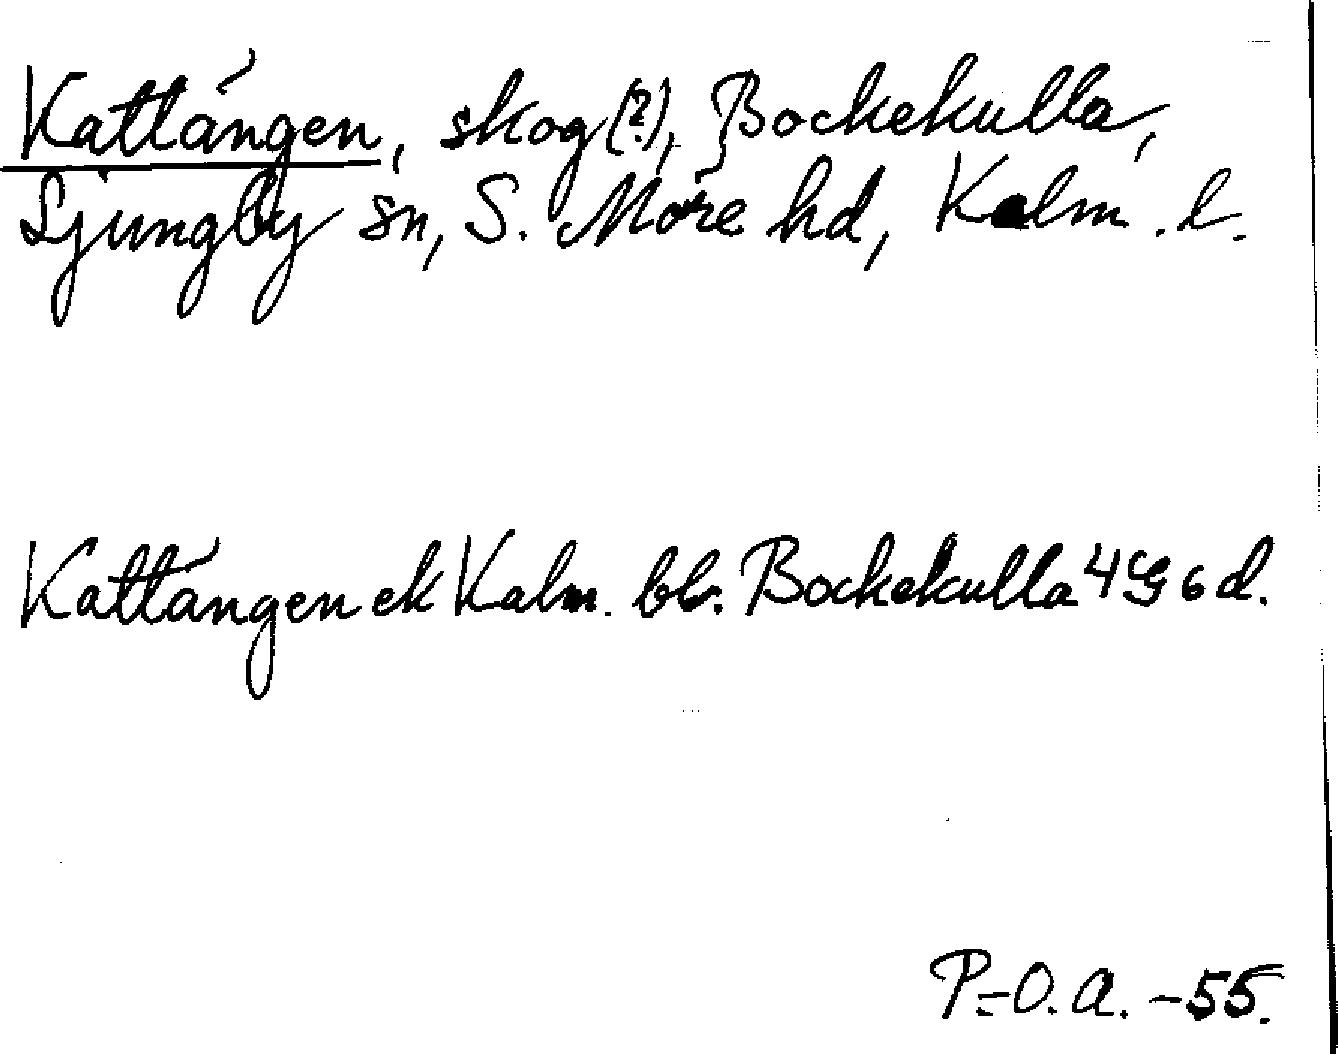 Kattängen, skog (?), Bockekulla,
Ljungby sn, S. Möre hd, Kalm. l.
Kattängen ek Kalm. bb. Bockekulla 4 G 6 d.
P-O. A. -55.